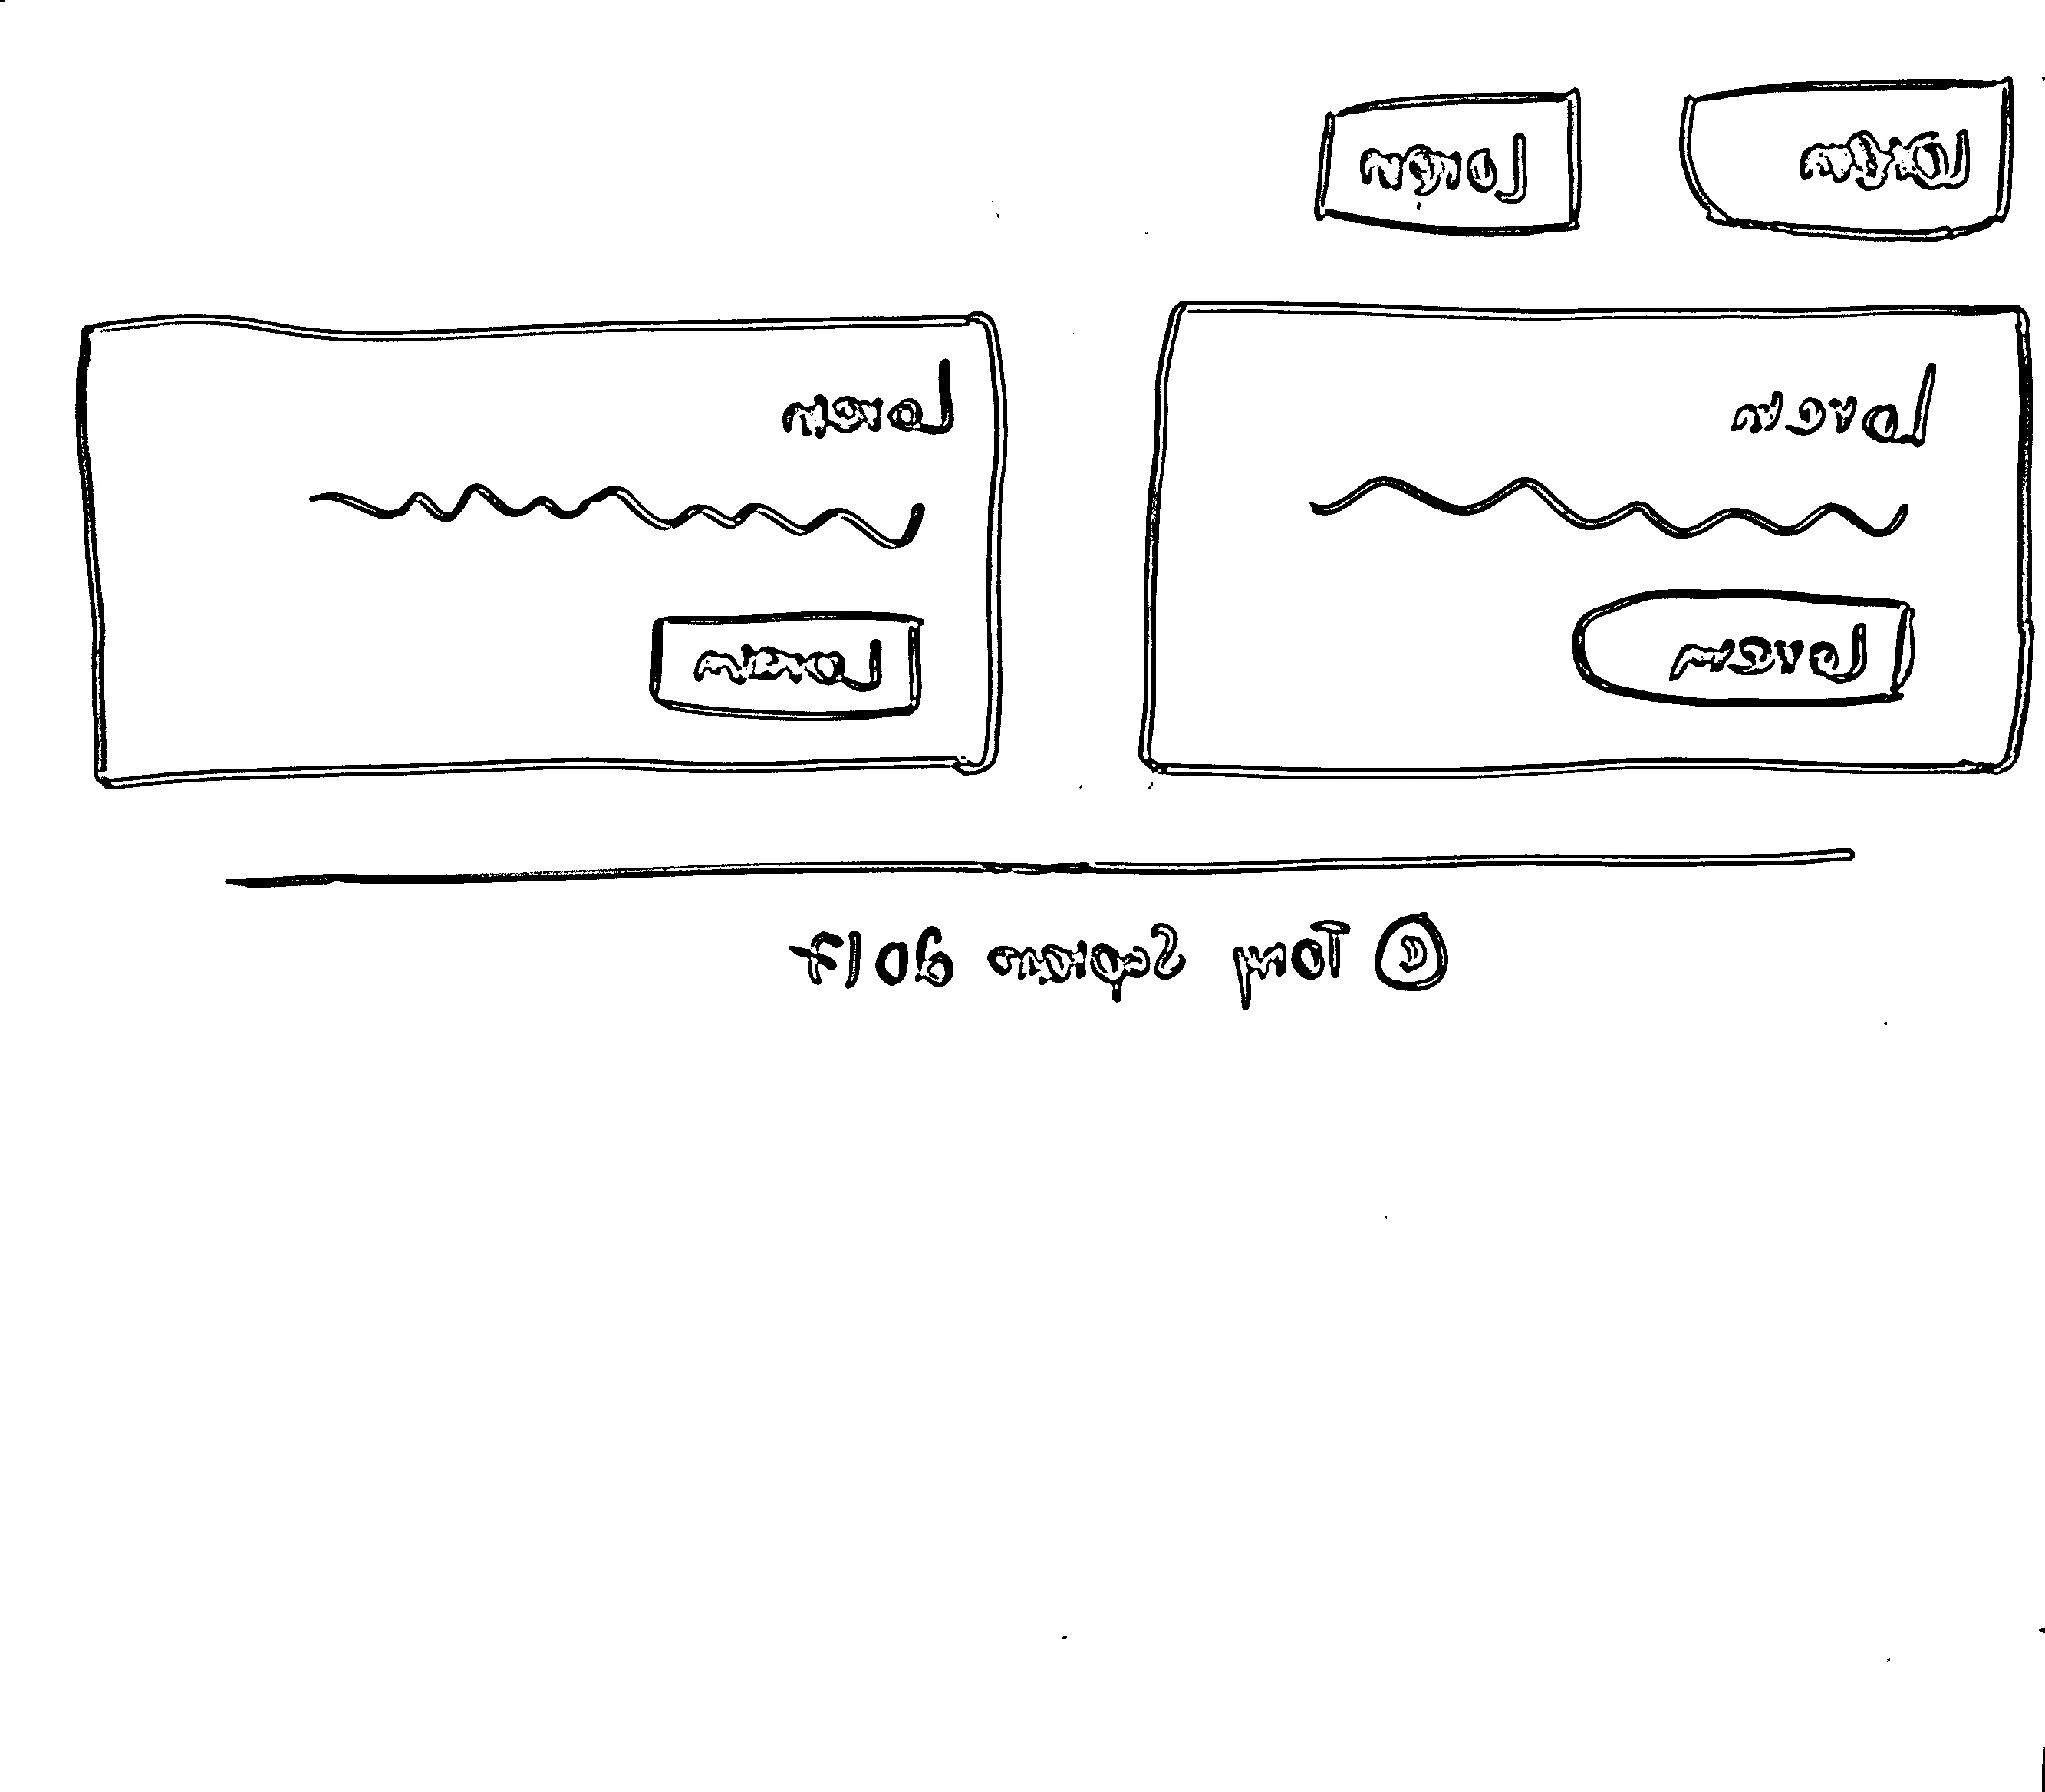 Lorem Lorem
Lorem
Lorem
Lorem
Lorem
© Tony 2017